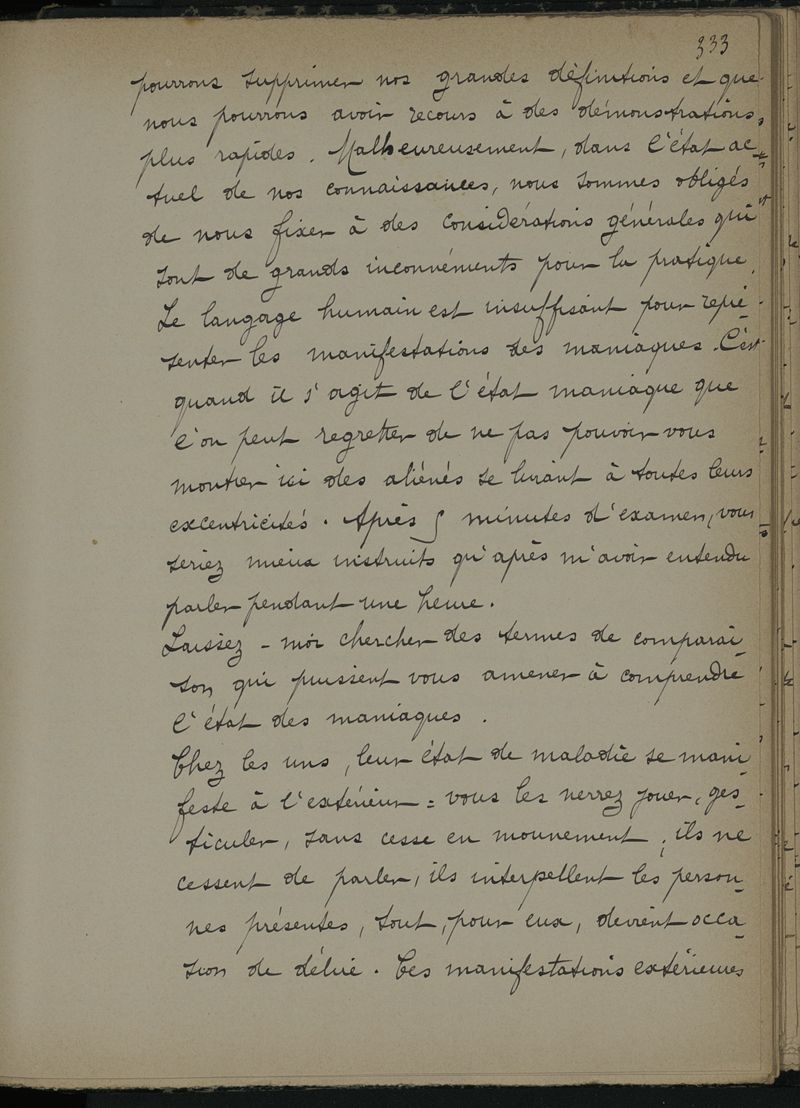 333
pourrons supprimer nos grandes définitions et que
nous pourrons avoir recours à des démonstrations
plus rapides. Malheureusement, dans l'état ac-
tuel de nos connaissances, nous sommes obligés
de nous fixer à des considérations générales qui
sont de grands inconvénients pour la pratique.
Le langage humain est insuffisant pour repré-
senter les manifestations des maniaques. C'est
quand il s'agit de l'état maniaque que
l'on peut regretter de ne pas pouvoir vous
montrer ici des aliénés se livrant à toutes leurs
excentricités. Après 5 minutes d'examen, vous
seriez mieux instruits qu'après m'avoir entendu
parler pendant une heure.
Laissez-moi chercher des termes de comparai-
son qui puissent vous amener à comprendre
l'état des maniaques.
Chez les uns, leur état de maladie se mani-
feste à l'extérieur = vous les verrez jouer, ges-
ticuler, sans cesse en mouvement ; ils ne
cessent de parler, ils interpellent les person-
nes présentes, tout, pour eux, devient occa-
sion de délire. Ces manifestations extérieures